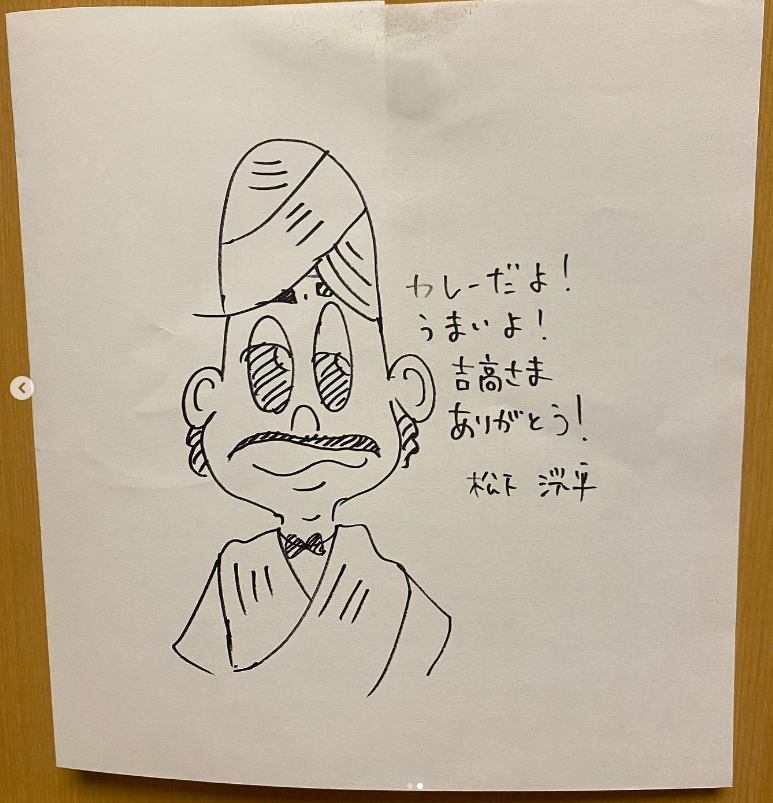 カレーだよ!
うまいよ!
吉高さま
ありがとう!
松下 洸平